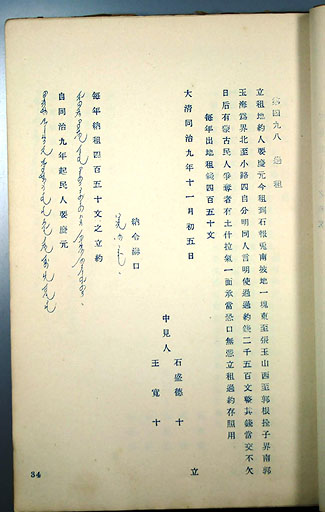 四九八 過租
立租地約人要慶元今租到石報兎南坡地一塊東至張玉山西至郭根拴子界南郭
玉海爲界北至小路四自分明同人言明使過過約錢二千五百文整其錢當交不欠
日后有蒙古民人爭奪者有土什拉氣一面承當恐口無憑立租過約存照用
每年出地租錢四百五十文
大清同治九年十一月初五日
中見人
石盛德 十
王寬 十
立
納令 口
每年納租四百五十文之立約
自同治九年起民人要慶元
34